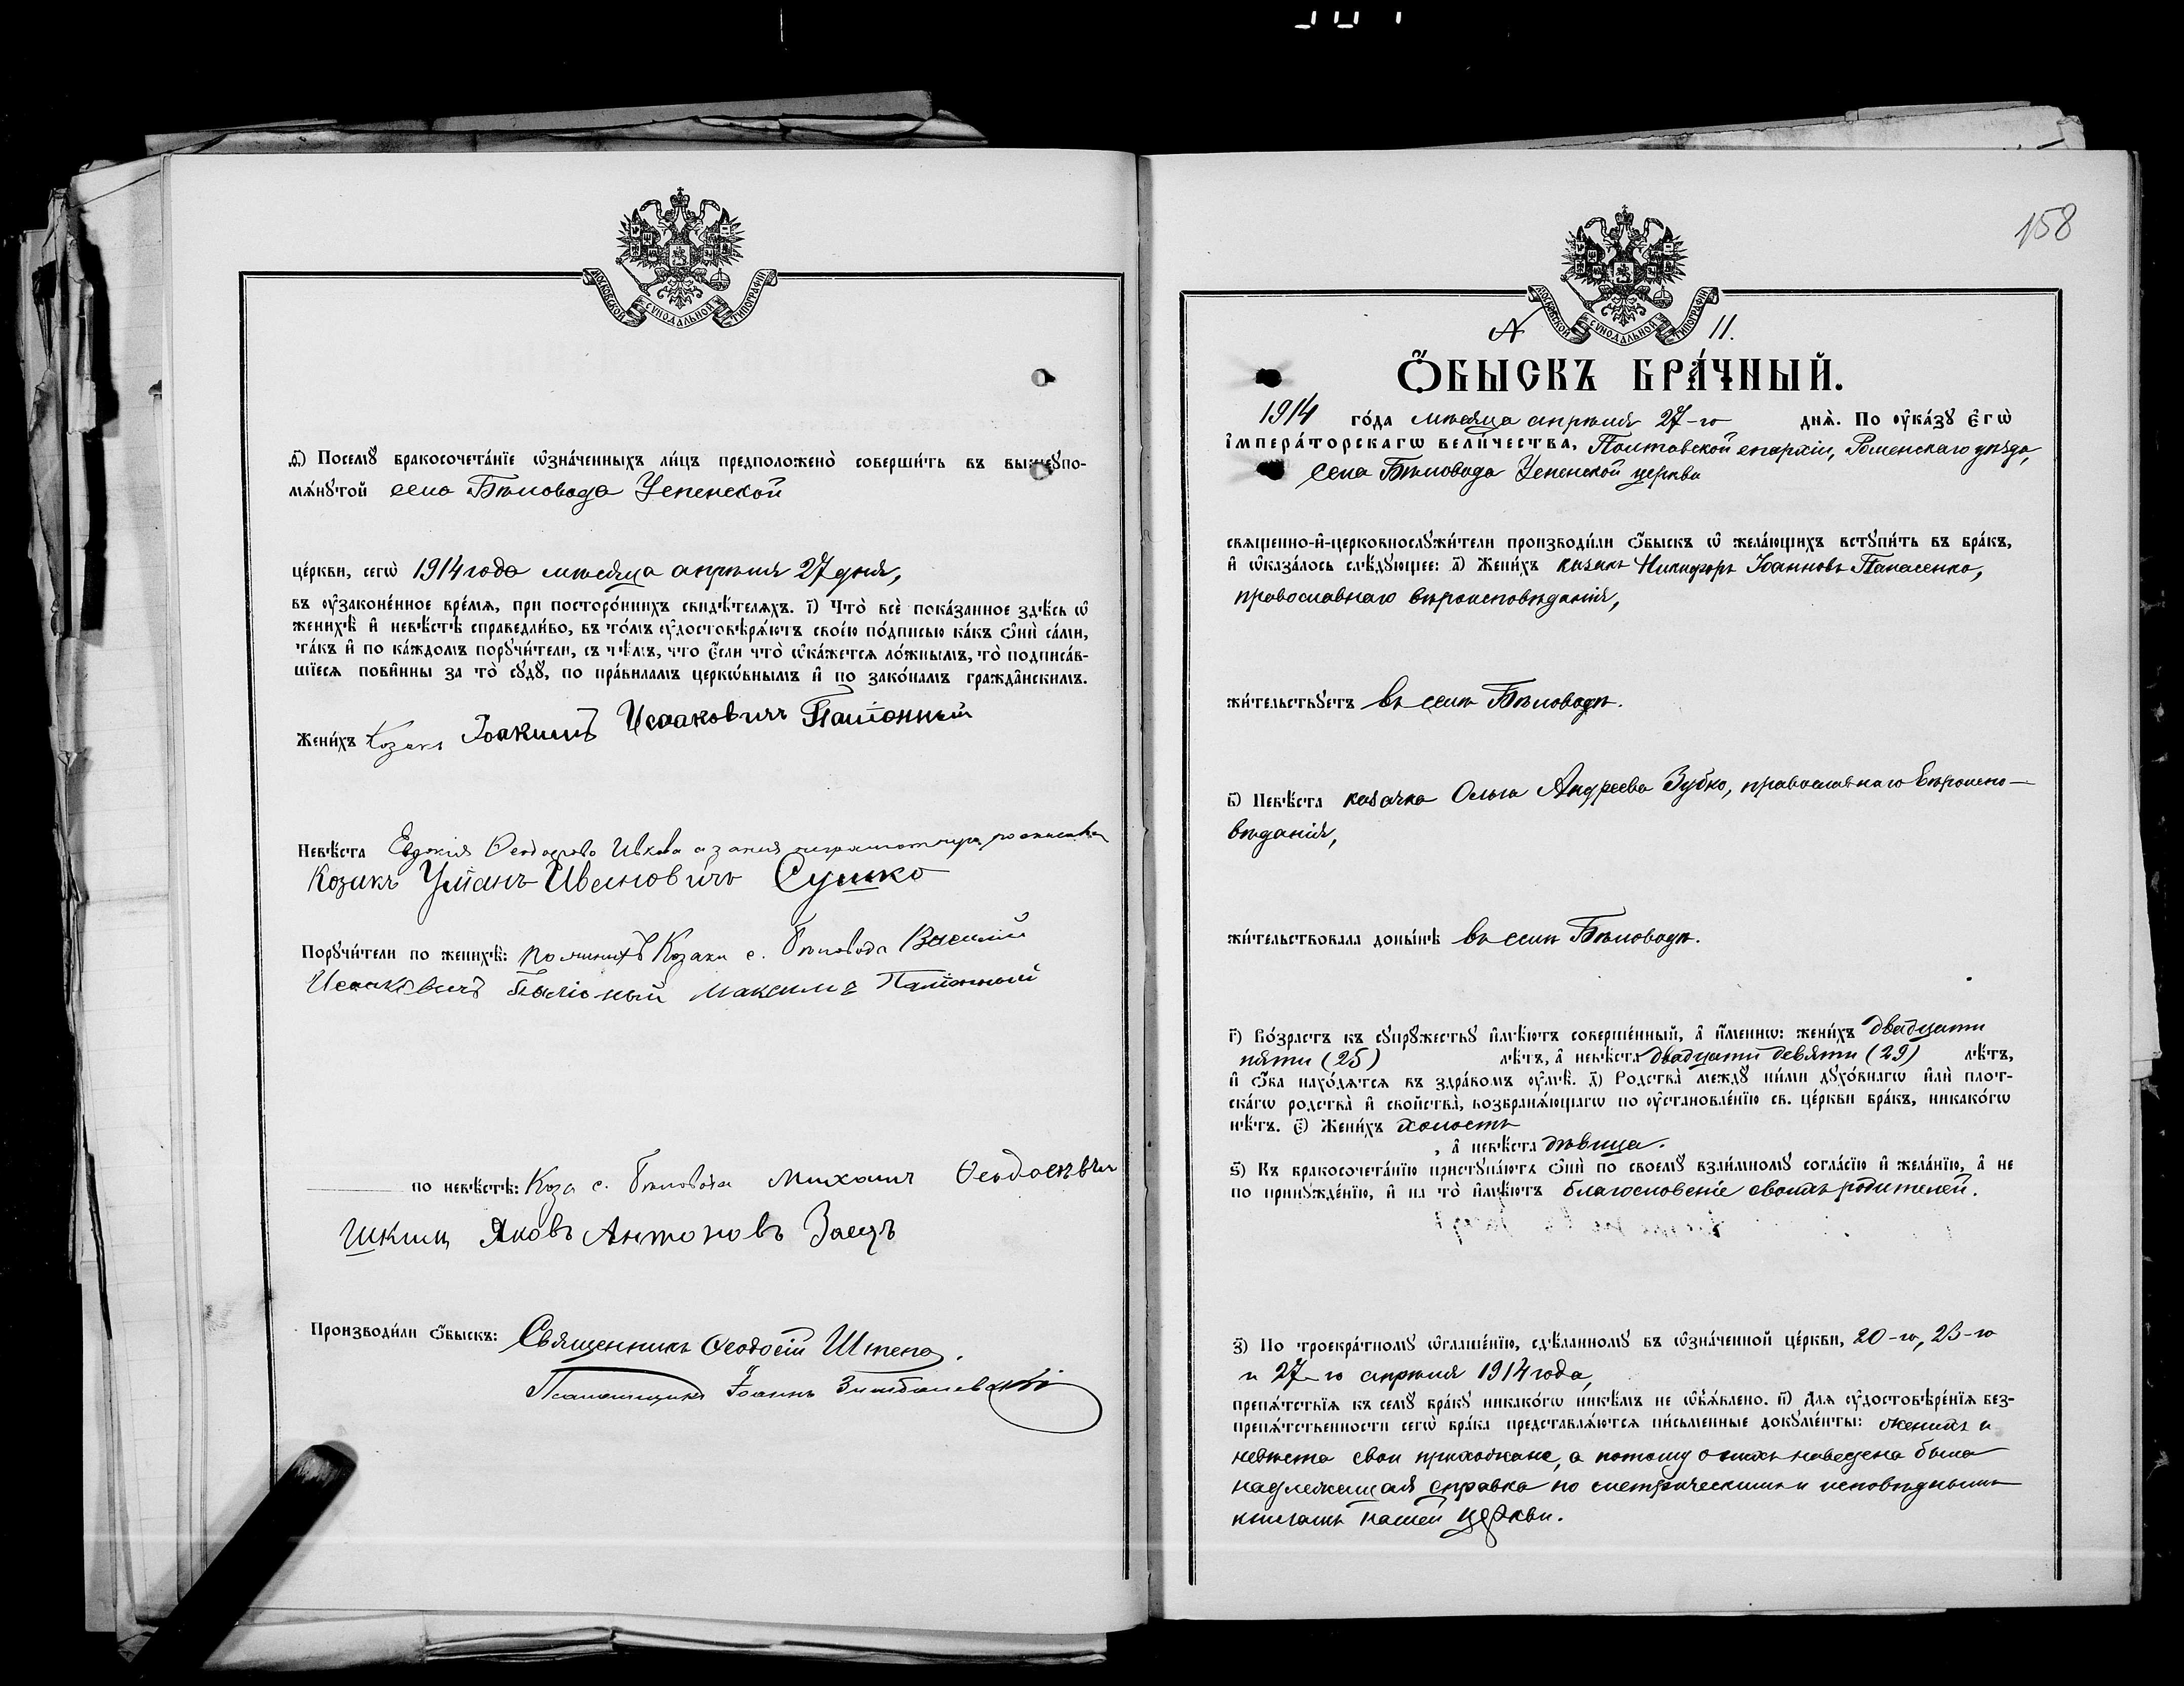 МОСКОВСКОЙ СѴНОДАЛЬНОЙ ТИПОГРАФІИ
д҃) Посемꙋ̀ бракосочета́нїе ѡ҆зна́ченныхъ ли́цъ предположено̀ соверши́ть въ вышеꙋпо-
мѧ́нꙋтой села Бѣловода Успенской
це́ркви, сегѡ̀ 1914 года мѣсяца апрѣля 27 дня,
въ ᲂу҆зако́нéнное вре́мѧ, при посторо́ннихъ свидѣ́телѧхъ. і҃) Что̀ всѐ пока́занное здѣ́сь ѡ҆
женихѣ̀ и҆ невѣ́стѣ справедли́во, въ то́мъ ᲂу҆достовѣрѧ́ютъ свое́ю по́дписью ка́къ ѻ҆нѝ са́ми,
та́къ и҆ по ка́ждомъ порꙋчи́тели, съ тѣ́мъ, что є҆́сли что̀ ѡ҆ка́жется ло́жнымъ, то̀ подписа́в-
шїесѧ пови́нны за то̀ сꙋдꙋ̀, по пра́виламъ церко́внымъ и҆ по зако́намъ гражда́нскимъ.
Жени́хъ Козакъ Іоакимъ Исааковичъ Паліонный
Невѣ́ста Евдокія Ѳеодорова
Козакъ Уліанъ Ивановичъ Сушко
Порꙋчи́тели по женихѣ̀: по женихѣ Козаки с. Бѣловода Василій
Исааковичъ Паліоный Максимъ Паліонный
по невѣ́стѣ: Коза с. Бѣловода Михаилъ Ѳеодосѣвъ
Яковъ Антоновъ Заецъ
Производи́ли ѻ҆́быскъ: Священникъ Ѳеодосій Штепа.
Псаломщикъ Іоаннъ
158
МОСКОВСКОЙ СѴНОДАЛЬНОЙ ТИПОГРАФІИ
11.
Ѻ҆́БЫСКЪ БРА́ЧНЫЙ.
1914 го́да мѣсяца апрѣля 27-го днѧ̀. По ᲂу҆ка́зꙋ Є҆гѡ̀
І҆мпера́торскагѡ вели́чества, Полтавской епархіи, Роменскаго уѣзда,
села Бѣловода Успенской церкви
свѧще́нно-и҆-церковнослꙋжи́тели производи́ли ѻ҆́быскъ ѡ҆ жела́ющихъ встꙋпи́ть въ бра́къ,
и҆ ѡ҆каза́лось слѣ́дꙋющее: а҃) Жени́хъ козакъ Никифоръ Іоанновъ Панасенко,
православнаго вѣроисповѣданія,
жи́тельствꙋетъ въ селѣ Бѣловодѣ.
в҃) Невѣ́ста козачка Ольга Андреева Зубко, православнаго вѣроиспо-
вѣданія,
жи́тельствовала донынѣ въ селѣ Бѣловодѣ.
г҃) Во́зрастъ къ сꙋпрꙋ́жествꙋ и҆мѣ́ютъ соверше́нный, а҆ и҆́меннѡ: жени́хъ двадцати
пяти (25) лѣ́тъ, а҆ невѣ́ста двадцати девяти (29) лѣ́тъ,
и҆ ѻ҆́ба нахо́дѧтсѧ въ здра́вомъ ᲂу҆мѣ̀. д҃) Родства̀ междꙋ̀ ни́ми дꙋхо́внагѡ и҆лѝ плот-
ска́гѡ родства̀ и҆ свойства̀, возбранѧ́ющагѡ по ᲂу҆становле́нїю св. це́ркви бра́къ, никако́гѡ
нѣ́тъ. є҃) Жени́хъ холостъ
, а҆ невѣ́ста дѣвица.
ѕ҃) Къ бракосочета́нїю пристꙋпа́ютъ ѻ҆нѝ по своемꙋ̀ взаи́мномꙋ согла́сїю и҆ жела́нїю, а҆ не
по принꙋжде́нїю, и҆ на то̀ и҆мѣ́ютъ благословеніе своихъ родителей.
з҃) По троекра́тномꙋ ѡ҆глаше́нїю, сдѣ́ланномꙋ въ ѡ҆зна́ченной це́ркви, 20-го, 23-го
и 27-го апрѣля 1914 года,
препѧ́тствїѧ къ семꙋ̀ бра́кꙋ никако́гѡ никѣ́мъ не ѡ҆бъѧ́влено. и҃) Длѧ ᲂу҆достовѣре́нїѧ без-
препѧ́тственности сегѡ̀ бра́ка представлѧ́ются пи́сьменные докꙋме́нты: женихъ и
невѣста свои прихожане, а потому о нихъ наведена была
надлежащая справка по метрическимъ и исповѣднымъ
книгамъ нашей церкви.